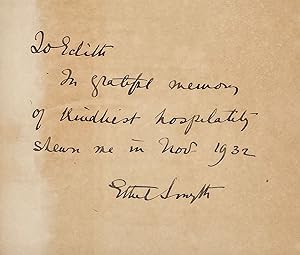 To Edith
In grateful memory
of kindliest hospitality
shewn me in Nov 1932
Ethel Smyth